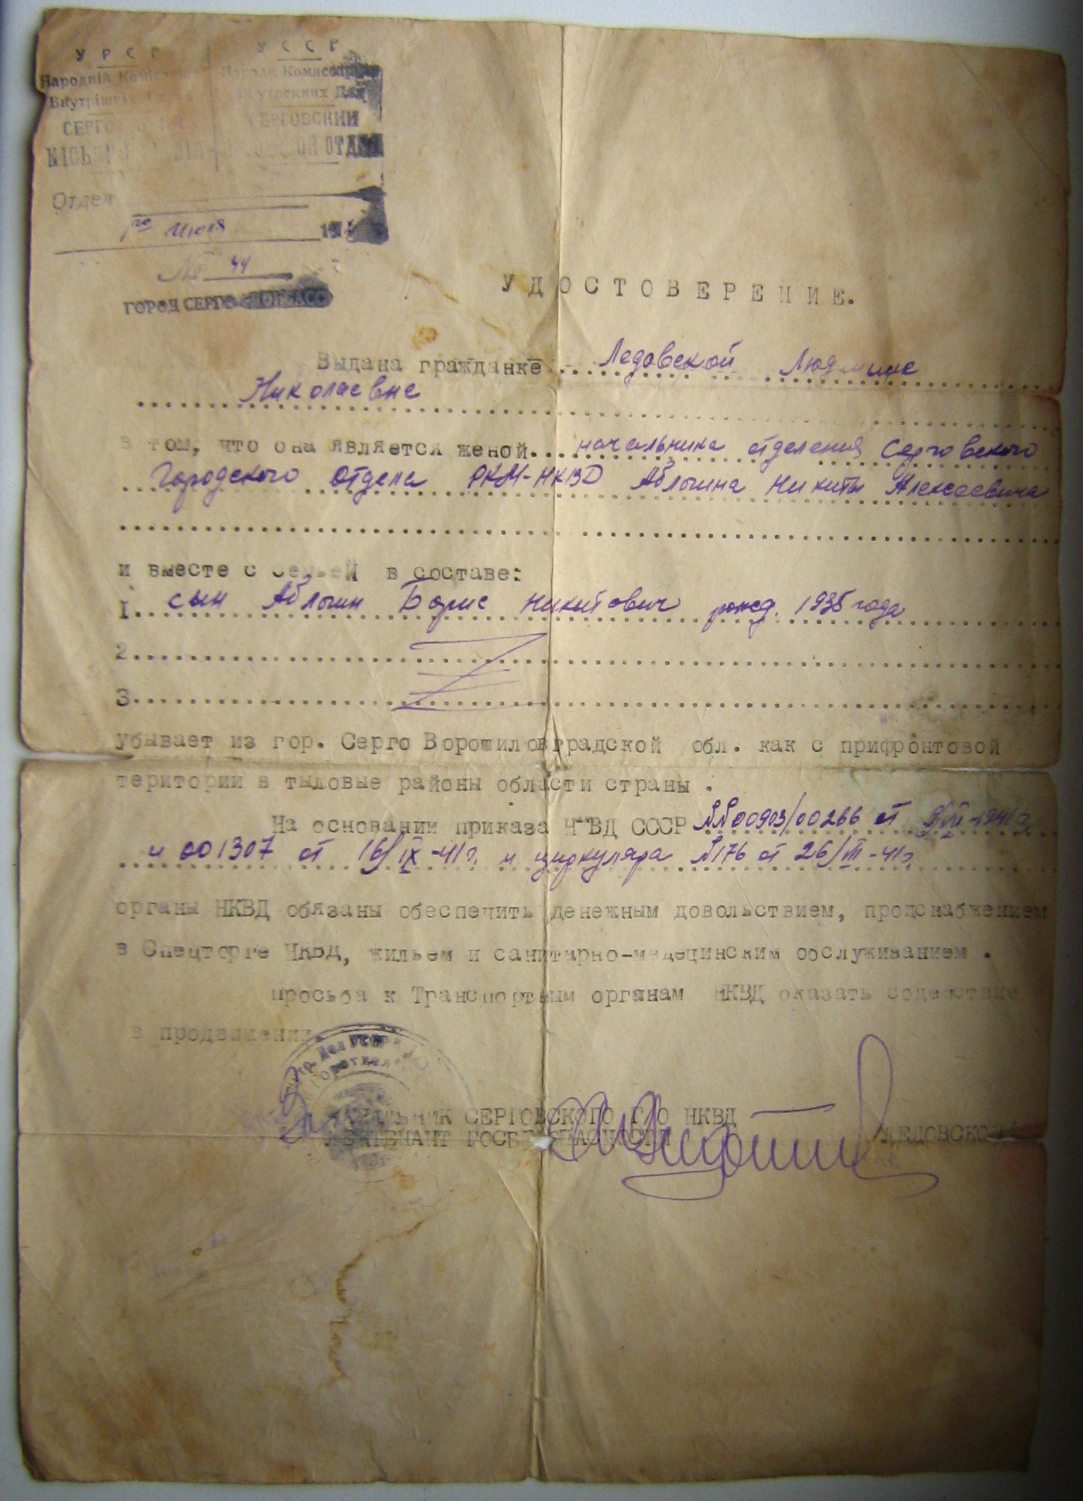 У Р С Р
У С С Р
Народній
Народн Комиссариат
Внутрішніх
Внутренних Дел
СЕРГОВСКИЙ
ОТДЕЛ
Отдел
1го Июля 19
№ 44
ГОРОД СЕРГО ДОНБАСС
УДОСТОВЕРЕНИЕ.
Выдана гражданке Ледовской Людмиле
Николаевне
в том, что она является женой начальника отделения Серговского
Городского Отдела РКМ-НКВД Аблогина Никиты Алексеевича
и вместе с семьей в составе:
1. сын Аблогин Борис Никитович рожд. 1935 года
2.
3.
убывает из гор. Серго Ворошиловградской обл. как с прифронтовой
територии в тыловые районы области страны .
На основании приказа НКВД СССР №№00903/00266 от 9/VII-1941г.
и 001307 от 16/IX-41г. и циркуляра №176 от 26/III-41г.
органы НКВД обязаны обеспечить денежным довольствием, продснабжением
в Спецторге НКВД, жильем и санитарно-медецинским обслуживанием .
Просьба к Транспортным органам НКВД оказать содействие
в продвижении.
НАЧАЛЬНИК СЕРГОВСКОГО Г/О НКВД
ЛЕЙТЕНАНТ ГОСБЕЗОПАСНОСТИ